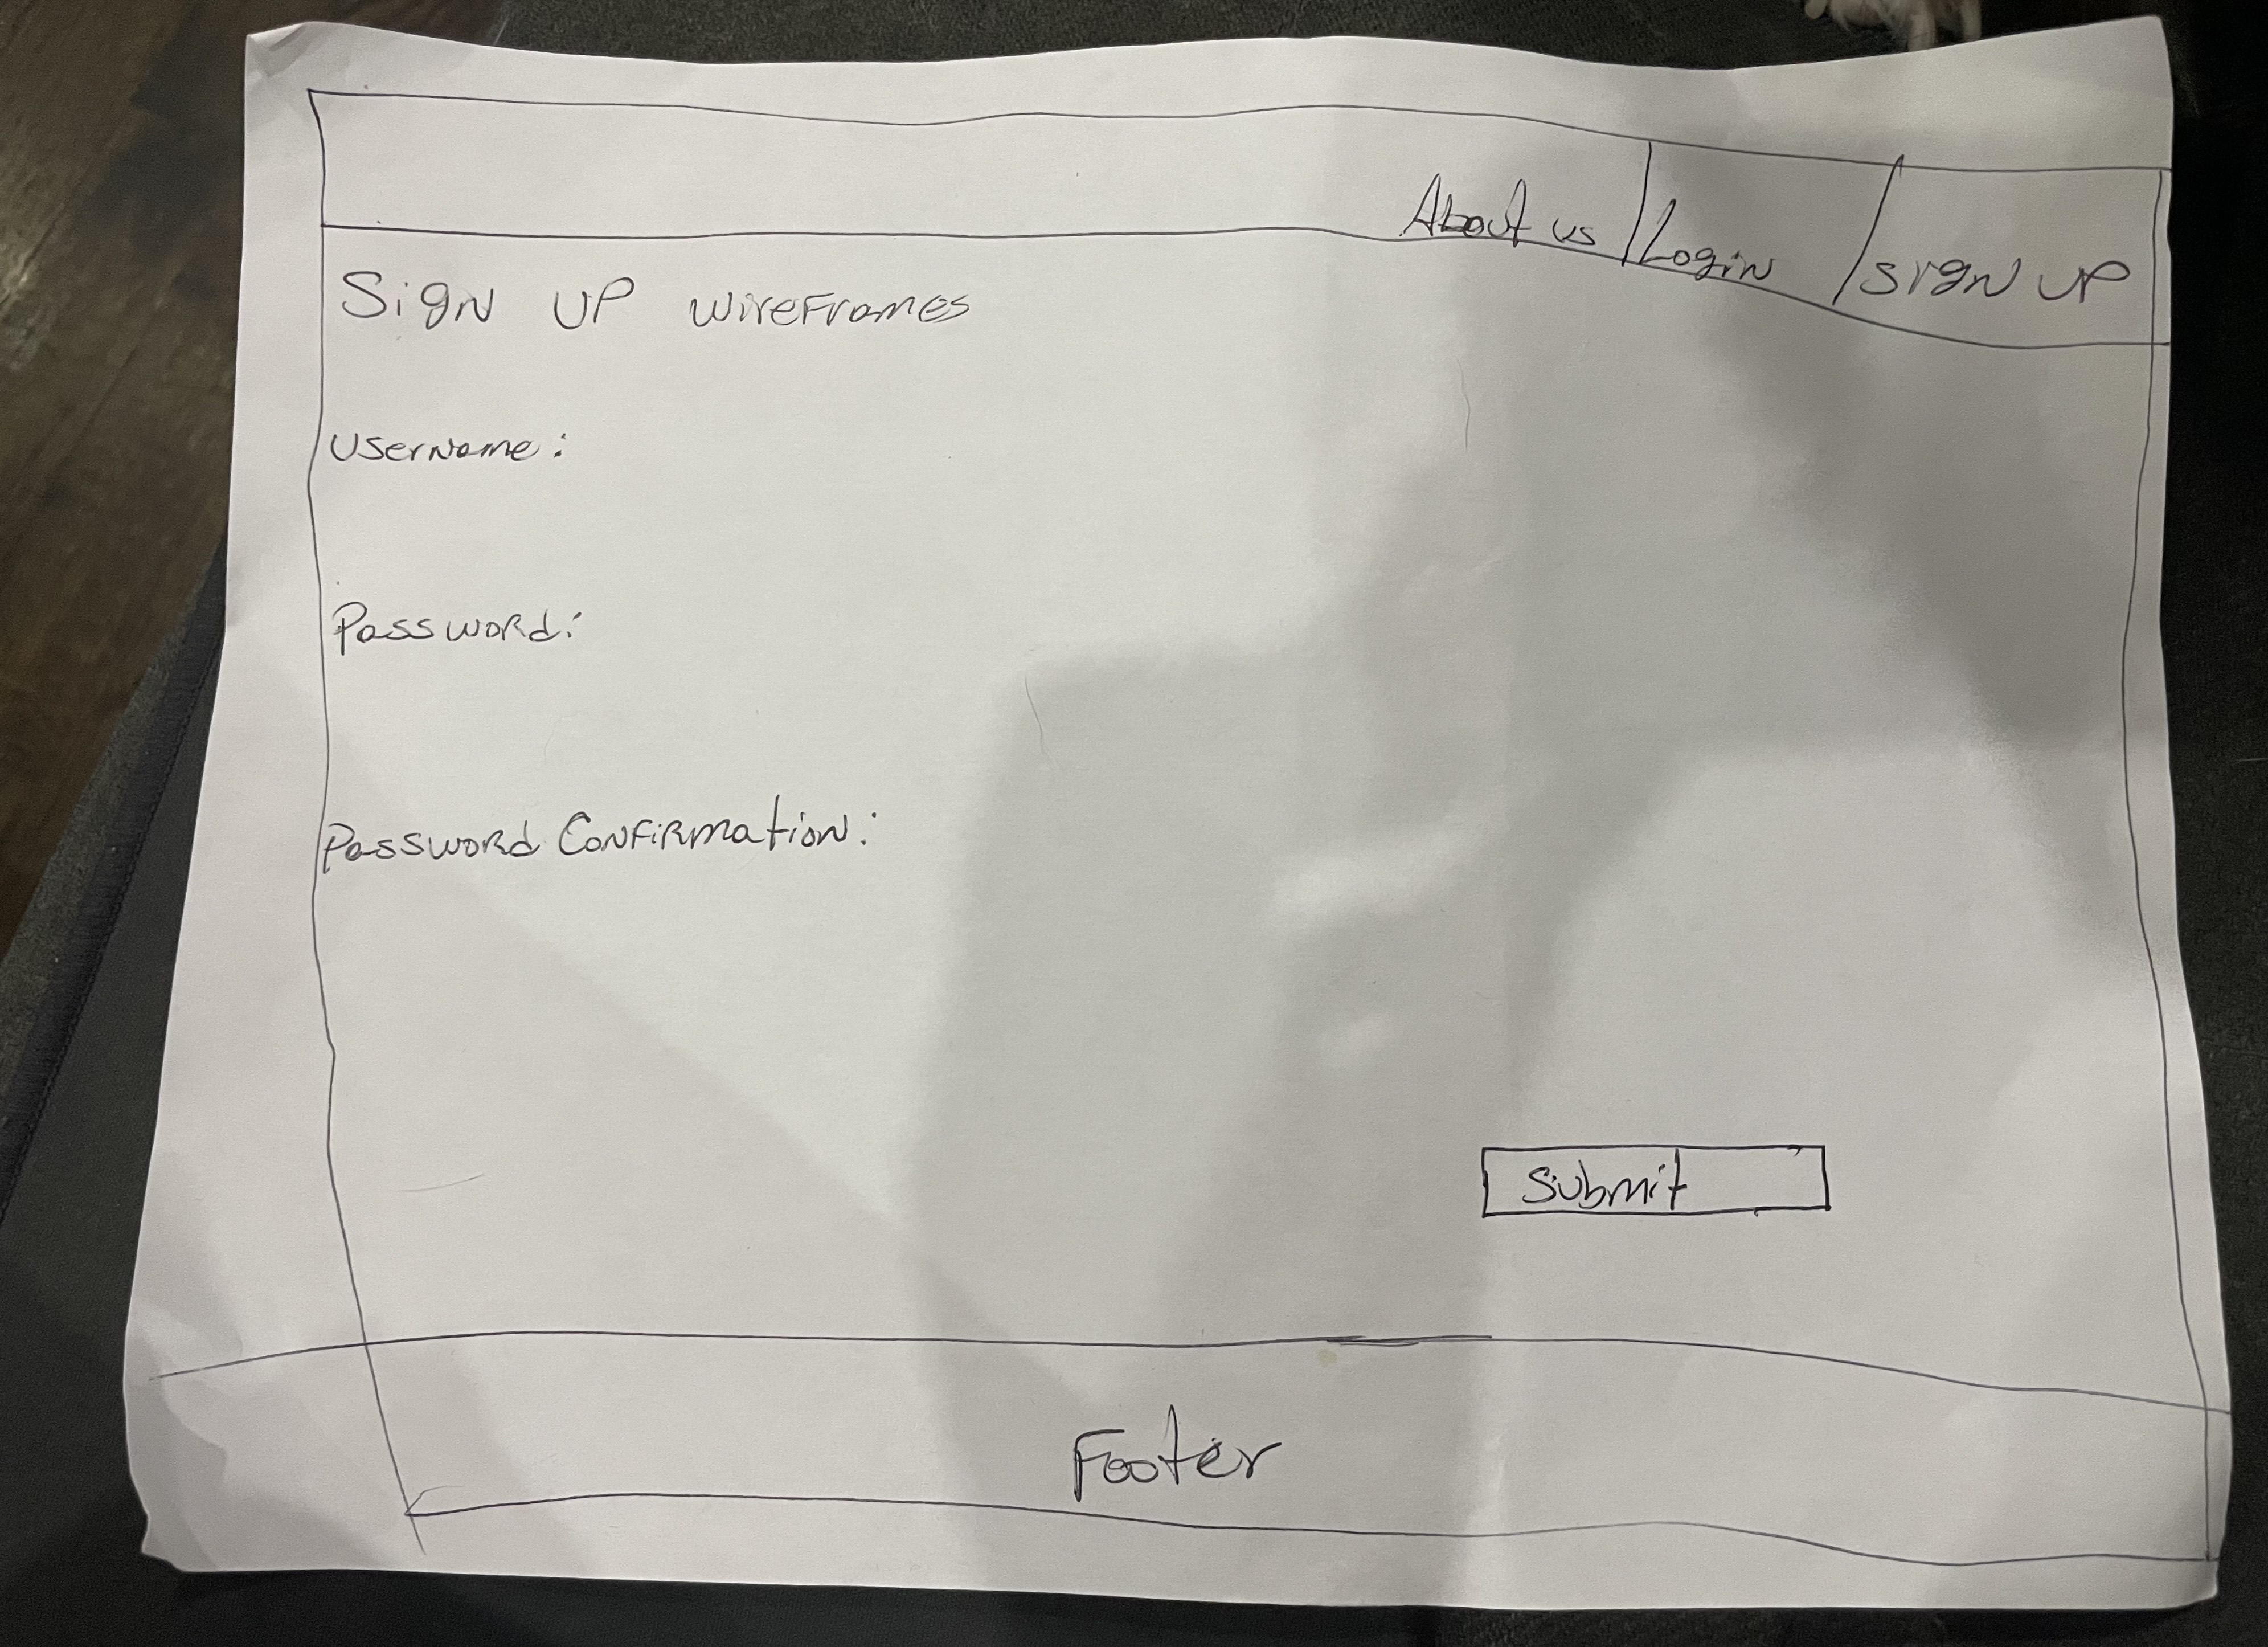 About us Login Sign up
Sign up wireframes
Username:
Password:
Password Confirmation:
Submit
Footer